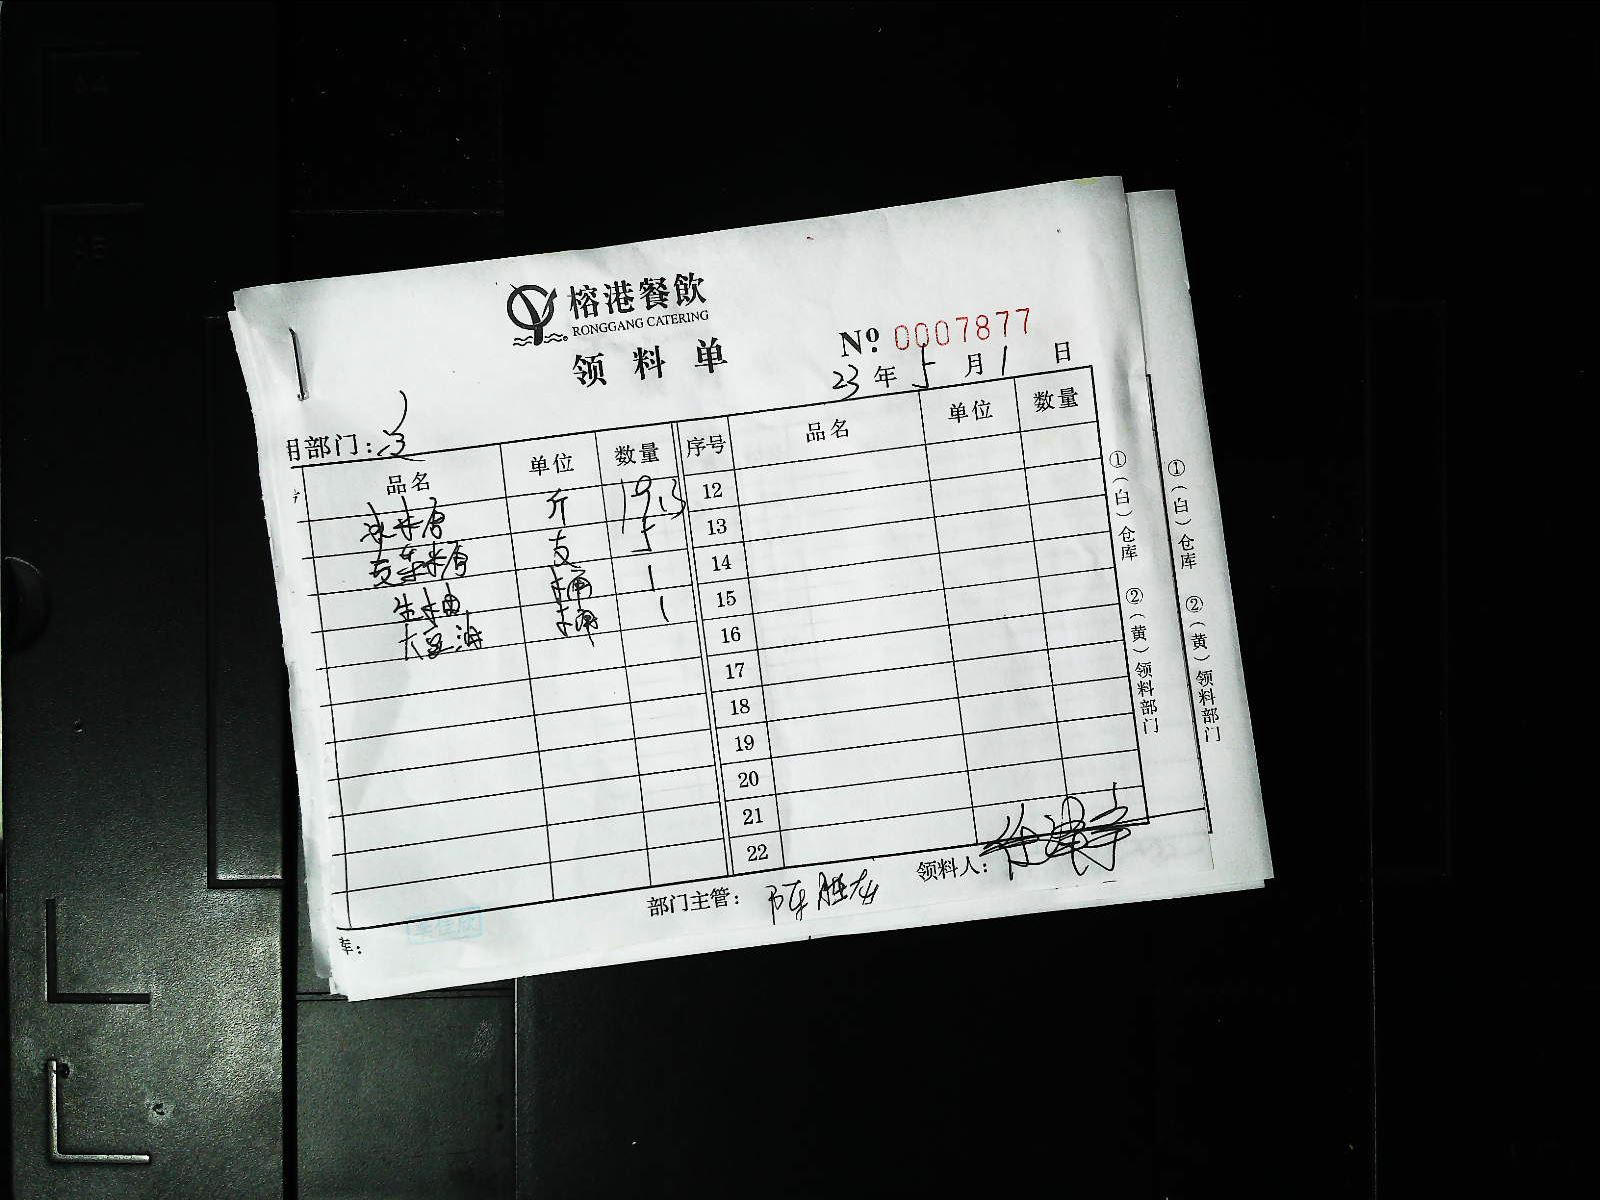 榕港餐飲
RONGGANG CATERING
领料单
№ 0007877
23年5月1日
用部门:
品名 单位 数量 序号 品名 单位 数量
斤 19.3 12
支 5 13
桶 1 14
大豆油 桶 1 15
16
17
18
19
20
21
22
①(白)仓库 ②(黄)领料部门
①(白)仓库 ②(黄)领料部门
部门主管: 陈 领料人: 徐
库: